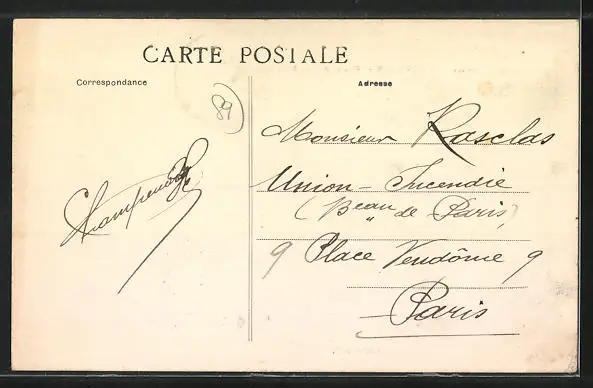 CARTE POSTALE
Correspondance
Adresse
89
Monsieur Rasclas
Union - Incendie
( Beau de Paris )
9 Place Vendôme 9
Paris